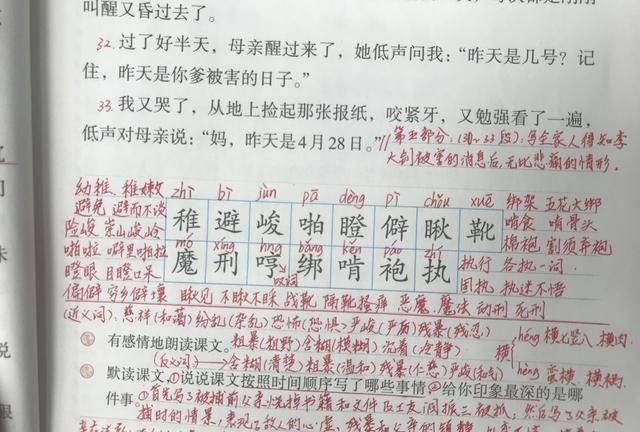 叫醒又昏过去了。
32. 过了好半天，母亲醒过来了，她低声问我：“昨天是几号？记
住，昨天是你爹被害的日子。”
33. 我又哭了，从地上捡起那张报纸，咬紧牙，又勉强看了一遍，
低声对母亲说：“妈，昨天是4月28日。”
第五部分：(30~33段)：写全家人得知李
大钊被害的消息后,无比悲痛的情形。
幼稚、稚嫩 zhì bì jùn pā dèng pì chǒu xuē 绑架 五花大绑
避免 避而不谈 稚 避 峻 啪 瞪 僻 瞅 靴 啃食 啃骨头
险峻 崇山峻岭 mó xíng hng bǎng kěn páo zhí 棉袍 割须弃袍
啪啦 噼里啪啦 魔 刑 哼 绑 啃 袍 执 执行 各执一词
瞪眼 目瞪口呆 叹词 固执 执迷不悟
偏僻 穷乡僻壤 瞅见 不瞅不睬 战靴 隔靴搔痒 恶魔 魔法 动刑 死刑
(近义词)：慈祥(和蔼) 纷乱(杂乱) 恐怖(恐惧) 严峻(严厉) 残暴(残忍)
有感情地朗读课文。 粗暴(粗野) 含糊(模糊) 沉着(冷静) 横 héng 横七竖八 横肉
(反义词) 含糊(清楚) 粗暴(温和) 残暴(仁慈) 严峻(和气) hèng 蛮横
默读课文，①说说课文按照时间顺序写了哪些事情，②给你印象最深的是哪
件事。①首先写了被捕前父亲烧掉书籍和文件及工友阎振三被抓；然后写了父亲被
捕时的情景，表现了敌人的心虚、残暴和父亲的镇静